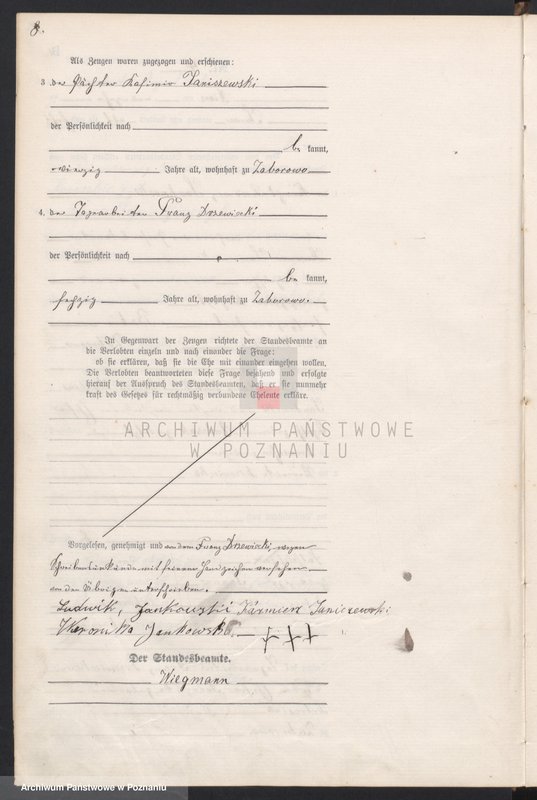 8.
Als Zeugen waren zugezogen und erschienen:
3. der Pächter Kasimir Janiszewski
der Persönlichkeit nach
be kannt,
vierzig Jahre alt, wohnhaft zu Zaborowo
4. der Franz Drzewiecki
der Persönlichkeit nach
be kannt,
sechzig Jahre alt, wohnhaft zu Zaborowo.
In Gegenwart der Zeugen richtete der Standesbeamte an
die Verlobten einzeln und nach einander die Frage:
ob sie erklären, daß sie die Ehe mit einander eingehen wollen.
Die Verlobten beantworteten diese Frage bejahend und erfolgte
hierauf der Ausspruch des Standesbeamten, daß er sie nunmehr
kraft des Gesetzes für rechtmäßig verbundene Eheleute erkläre.
ARCHIWUM PAŃSTWOWE
W POZNANIU
Vorgelesen, genehmigt und von dem Franz Drzewiecki, wegen
Schreibensunkunde mit seinem Handzeichen versehen,
von den Übrigen unterschrieben.
Ludwik, Jankowski Kazmierz Janiszewski
Weronika Jankowska. – + + +
Der Standesbeamte.
Wiegmann
Archiwum Państwowe w Poznaniu